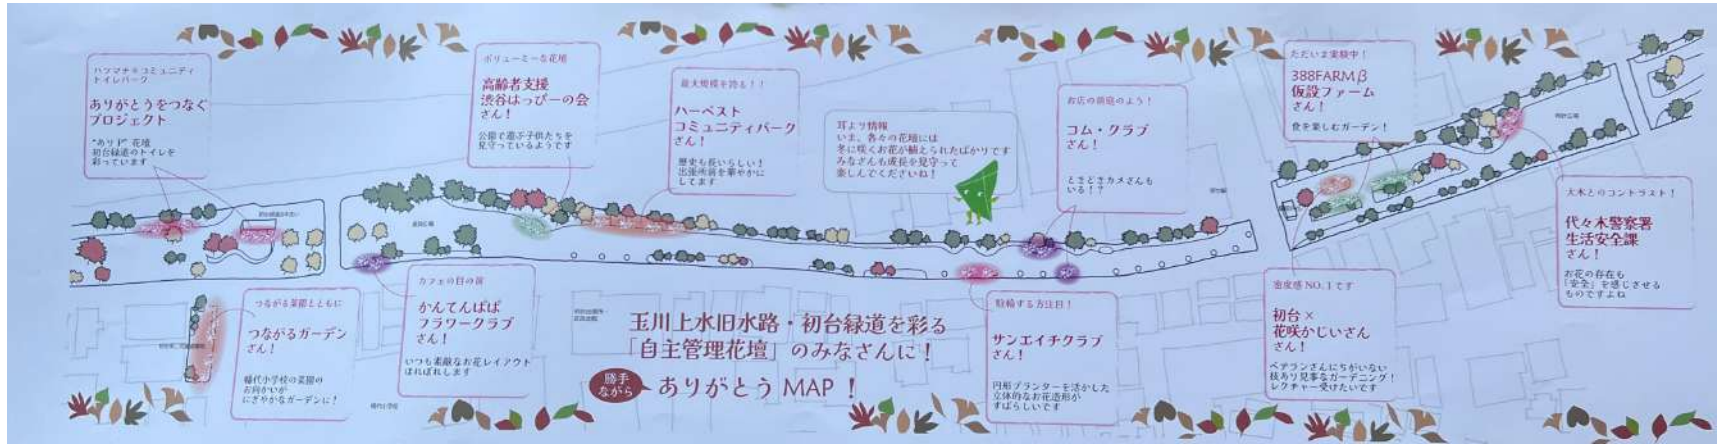 ハツマチ＊コミュニティ
トイレパーク
ありがとうをつなぐ
プロジェクト
初台緑道のトイレを
彩っています
ボリューミーな花壇
高齢者支援
渋谷はっぴーの会
さん！
公園で遊ぶ子供たちを
見守っているようです
最大規模を誇る！！
ハーベスト
コミュニティパーク
さん！
歴史も長いらしい！
出張所前を華やかに
してます
耳より情報
いま、各々の花壇には
冬に咲くお花が植えられたばかりです
みなさんも成長を見守って
楽しんでくださいね！
お店の前庭のよう！
コム・クラブ
さん！
ときどきカメさんも
いる！？
ただいま実験中！
388FARMβ
仮設ファーム
さん！
食を楽しむガーデン！
大木とのコントラスト！
代々木警察署
生活安全課
さん！
お花の存在も
「安全」を感じさせる
ものですよね
つながる菜園とともに
つながるガーデン
さん！
幡代小学校の菜園の
お向かいが
にぎやかなガーデンに！
カフェの目の前
かんてんぱぱ
フラワークラブ
さん！
いつも素敵なお花レイアウト
ほれぼれします
玉川上水旧水路・初台緑道を彩る
「自主管理花壇」のみなさんに！
勝手
ながら
ありがとう MAP！
駐輪する方注目！
サンエイチクラブ
さん！
円形プランターを活かした
立体的なお花造形が
すばらしいです
密度感 NO.1です
初台×
花咲かじいさん
さん！
ベテランさんにちがいない
技あり見事なガーデニング！
レクチャー受けたいです